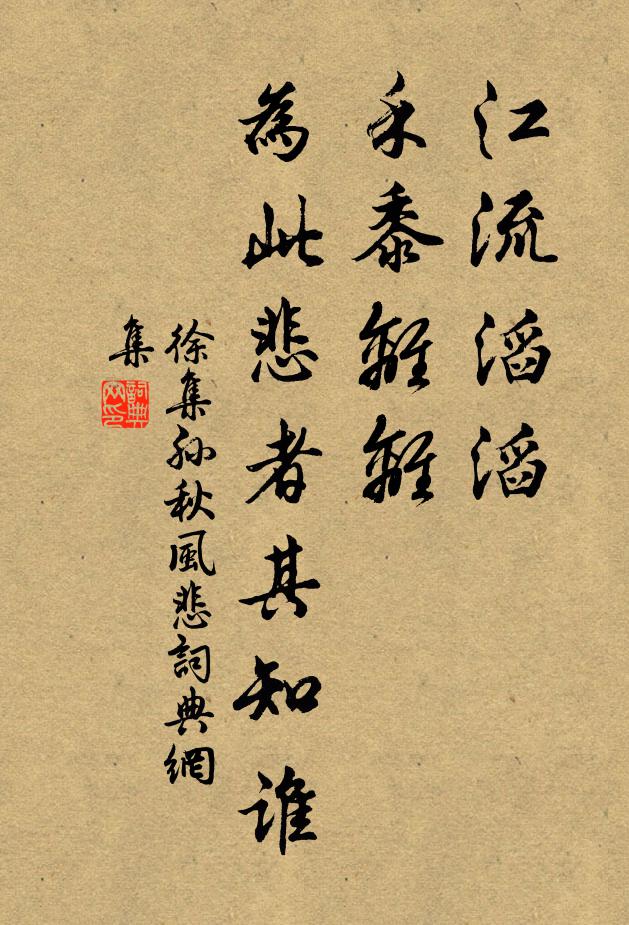 江流滔滔
禾黍離離
為此悲者其知誰
徐集孙秋風悲詞典網
集
詞典
网印